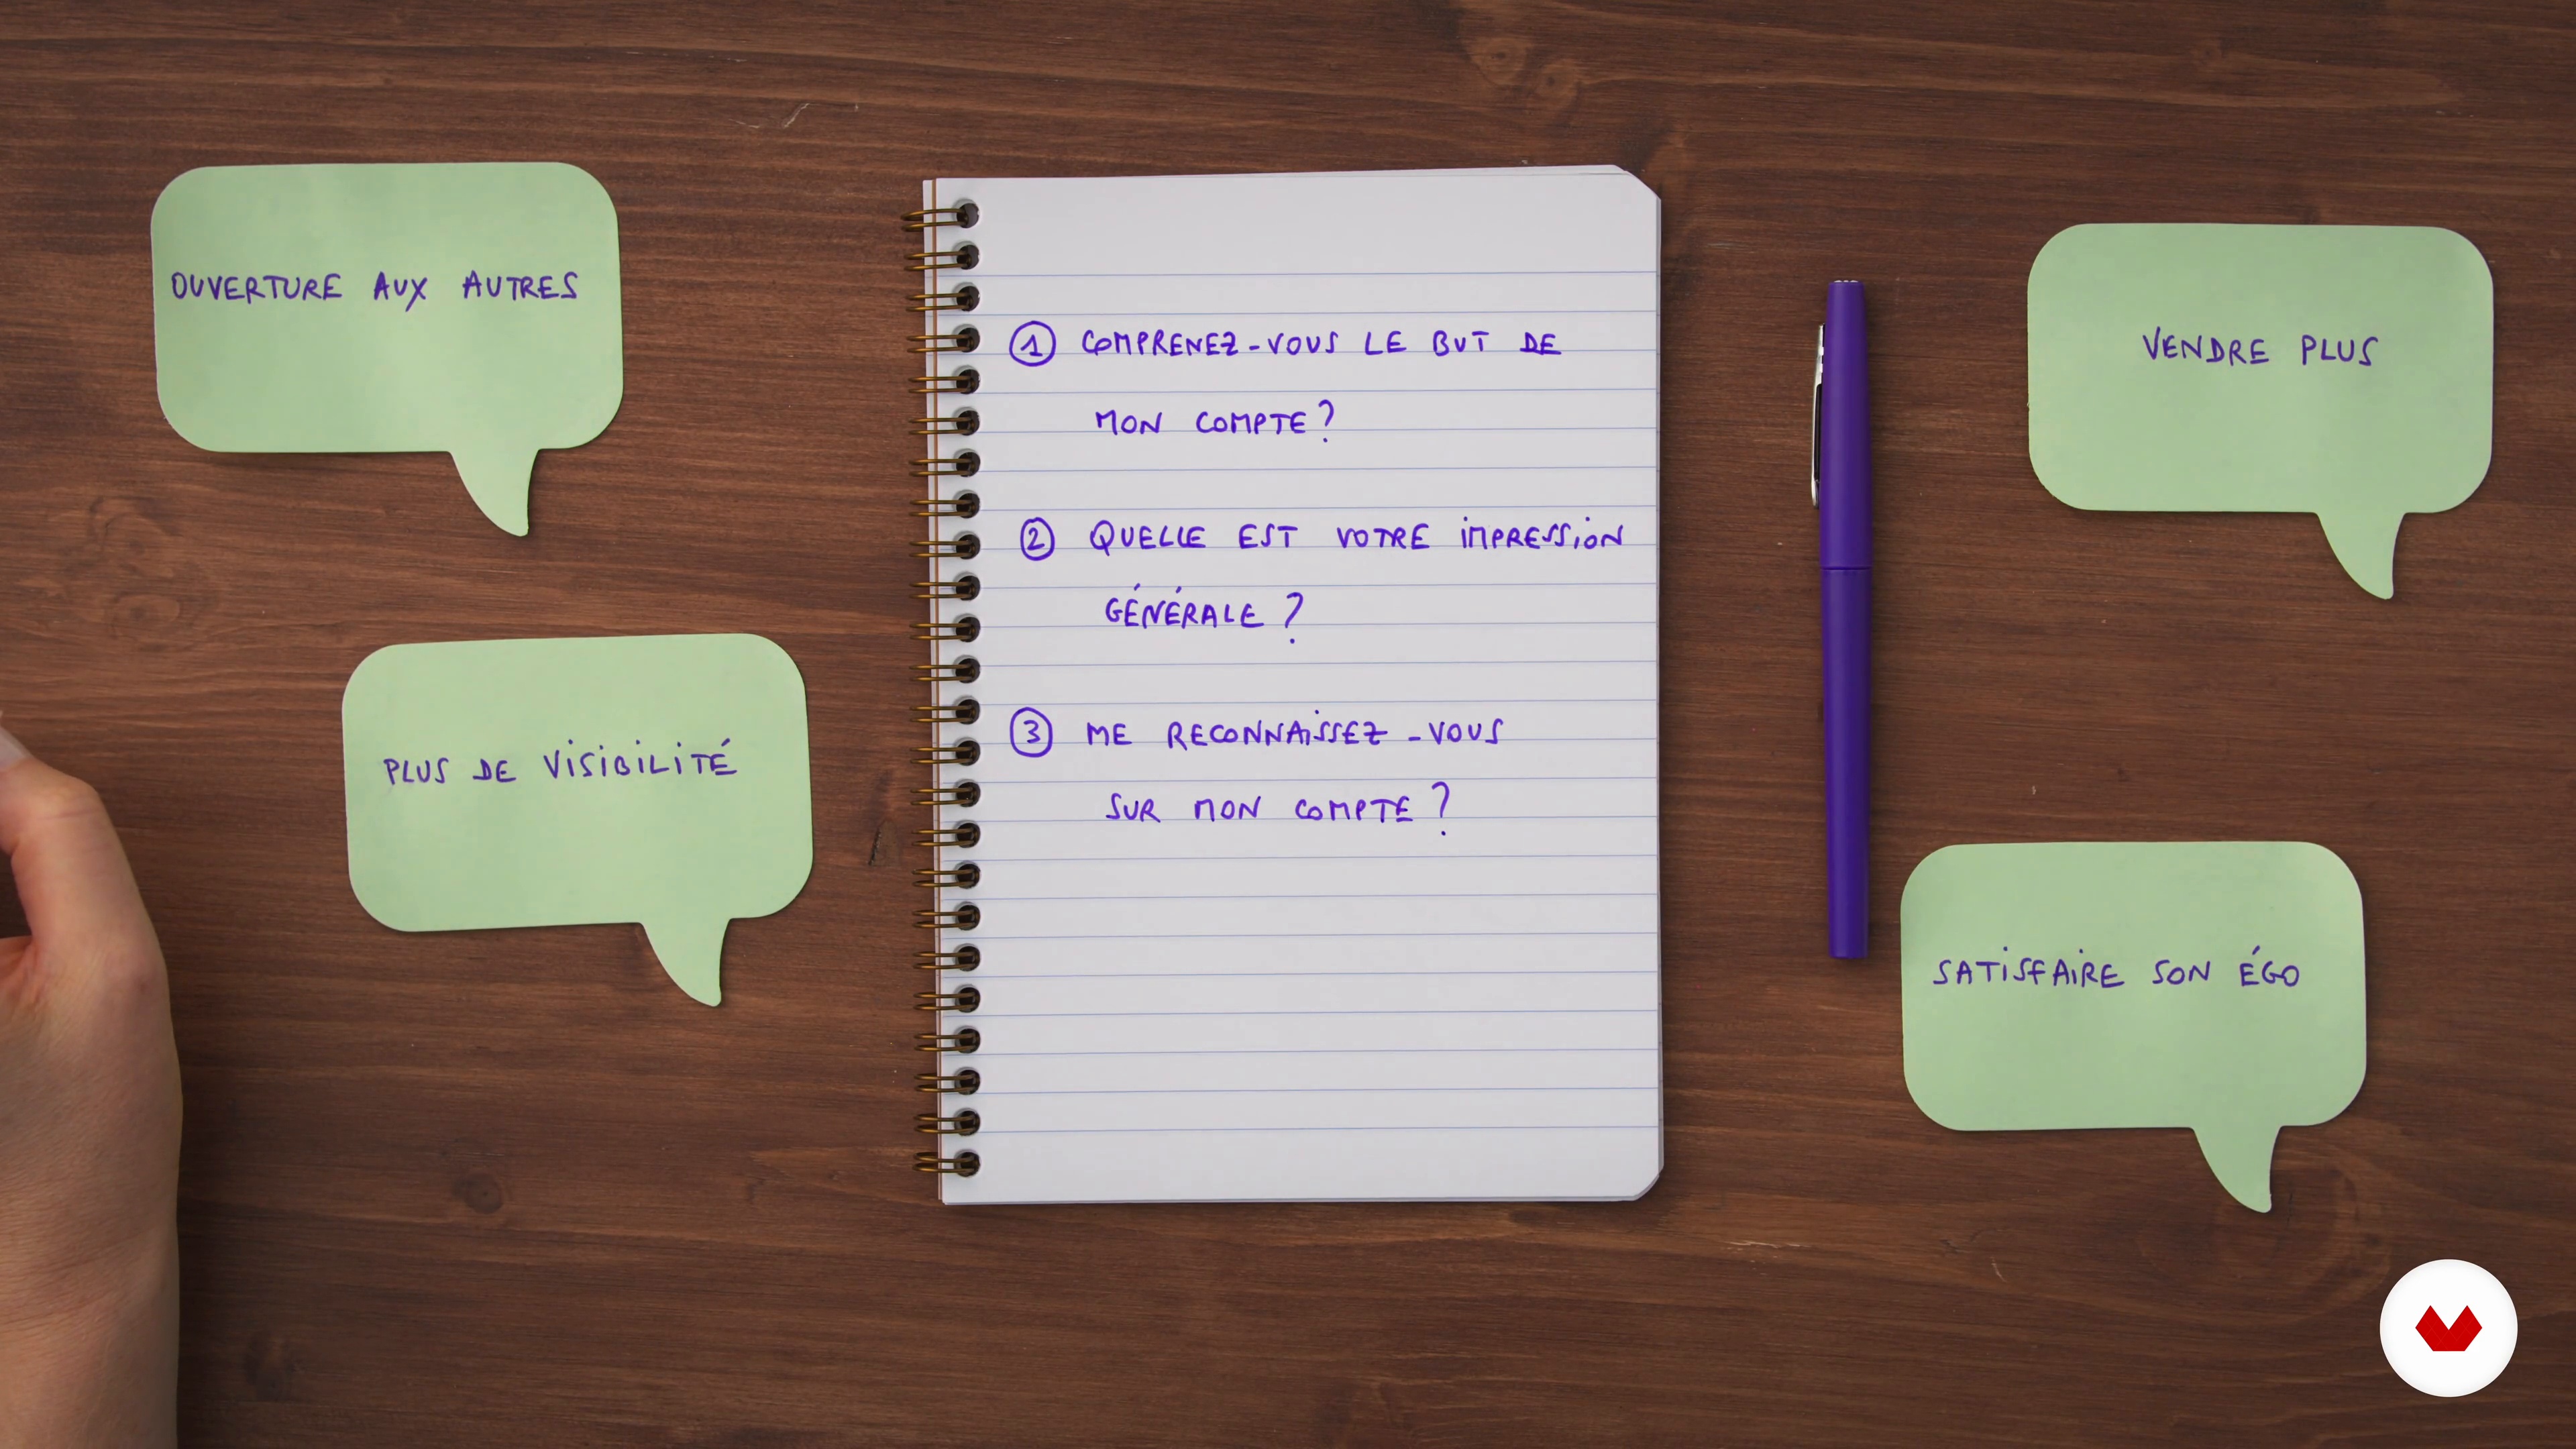 OUVERTURE AUX AUTRES
PLUS DE VISIBILITÉ
① COMPRENEZ-VOUS LE BUT DE
MON COMPTE ?
② QUELLE EST VOTRE IMPRESSION
GÉNÉRALE ?
③ ME RECONNAISSEZ-VOUS
SUR MON COMPTE ?
VENDRE PLUS
SATISFAIRE SON ÉGO